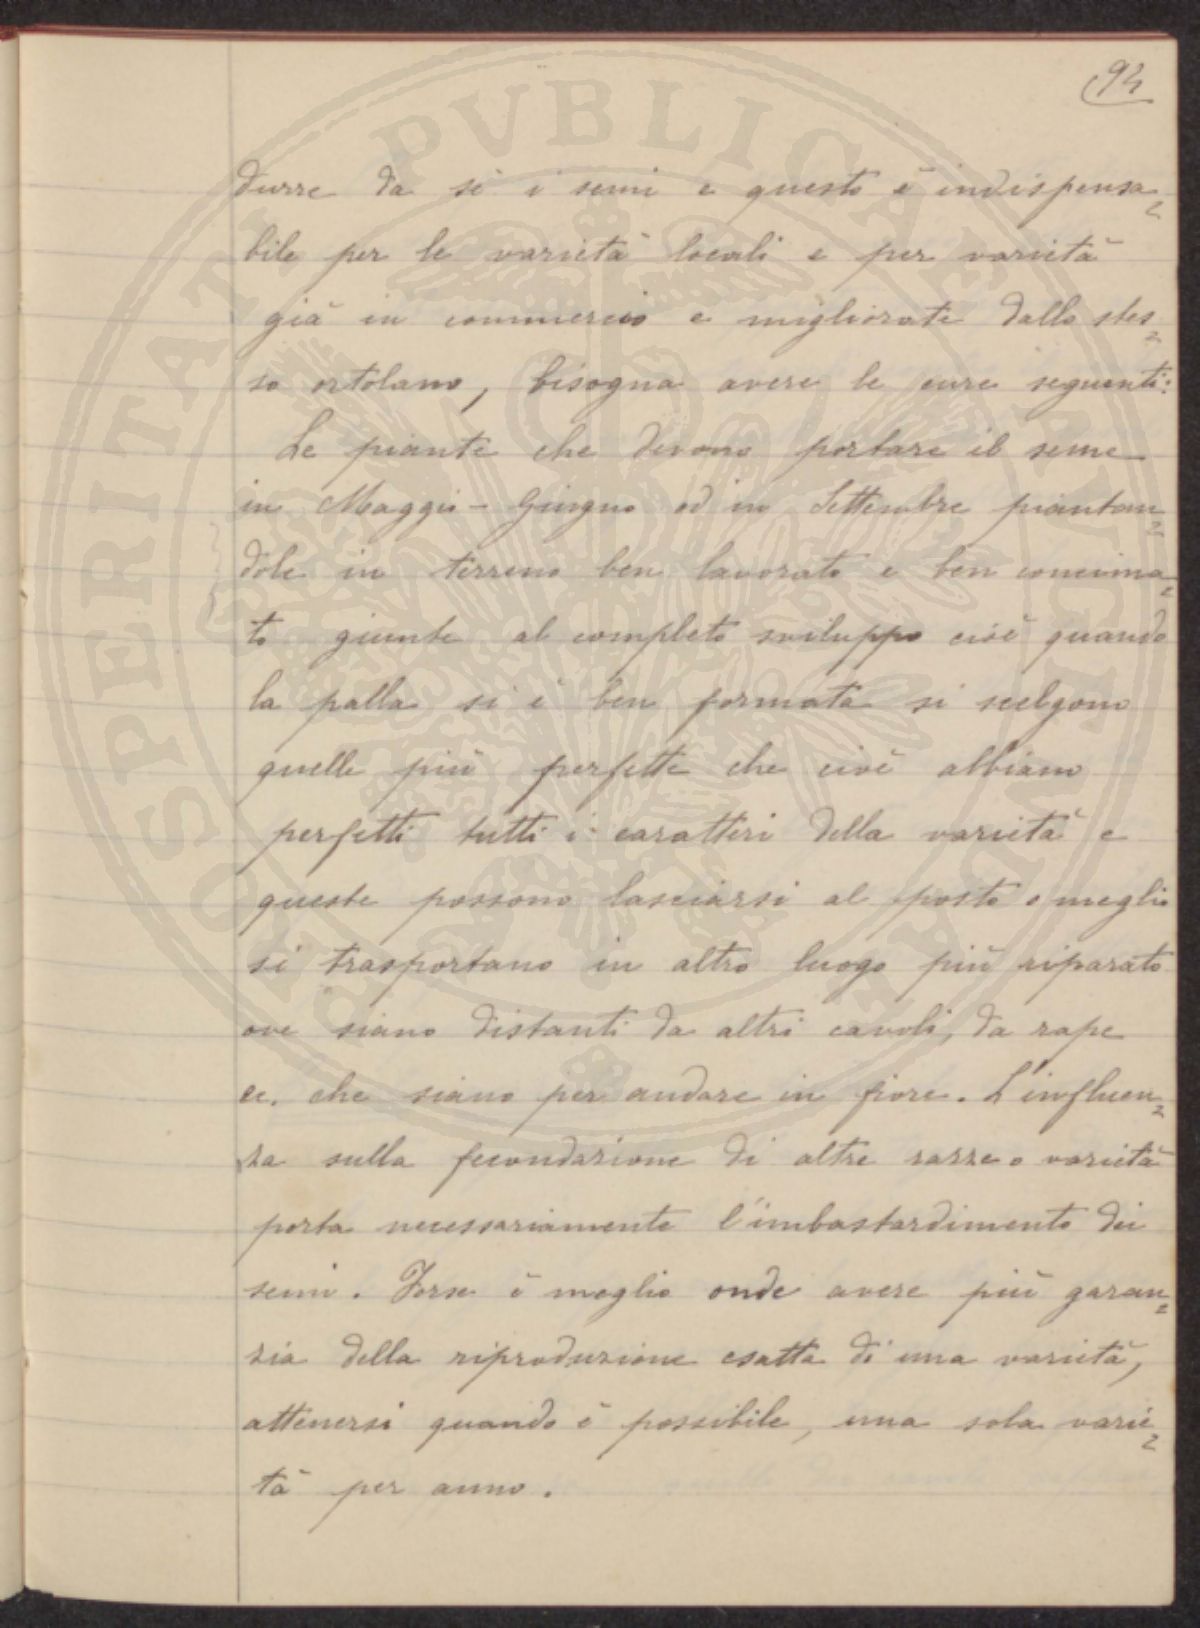 94
durre da sè i semi e questo è indispensa=
bile per le varietà locali e per varietà
già in commercio e migliorate dallo stes=
so ortolano, bisogna avere le cure seguenti:
Le piante che devono portare il seme
in Maggio - Giugno od in Settembre piantan=
dole in terreno ben lavorato e ben concima=
to giunte al completo sviluppo cioè quando
la palla si è ben formata si scelgono
quelle più perfette che cioè abbiano
perfetti tutti i caratteri della varietà e
queste possono lasciarsi al posto o meglio
si trasportano in altro luogo più riparato
ove siano distanti da altri cavoli, da rape
ec. che siano per andare in fiore. L'influen=
za sulla fecondazione di altre razze o varietà
porta necessariamente l'imbastardimento dei
semi. Forse è meglio onde avere più garan=
zia della riproduzione esatta di una varietà,
attenersi quando è possibile, una sola varie=
tà per anno.